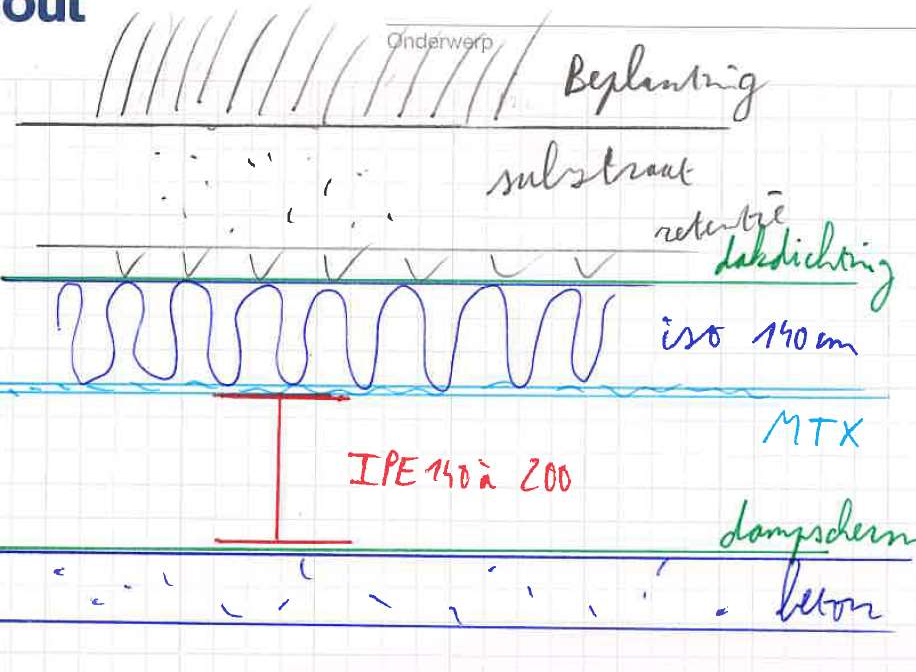 out
Onderwerp
Beplanting
substraat
retentie
dakdichting
iso 140 cm
MTX
IPE 140 à 200
dampscherm
beton